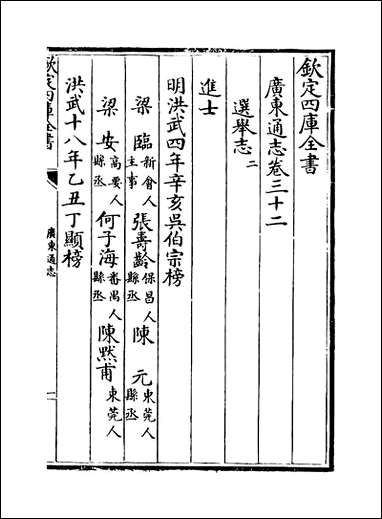 欽定四庫全書
廣東通志卷三十二
選舉志二
進士
明洪武四年辛亥吳伯宗榜
梁臨新會人主事 張壽齡保昌人縣丞 陳元東莞人縣丞
梁安高要人縣丞 何子海番禺人縣丞 陳黙甫東莞人
洪武十八年乙丑丁顯榜
欽定四庫全書
廣東通志
一